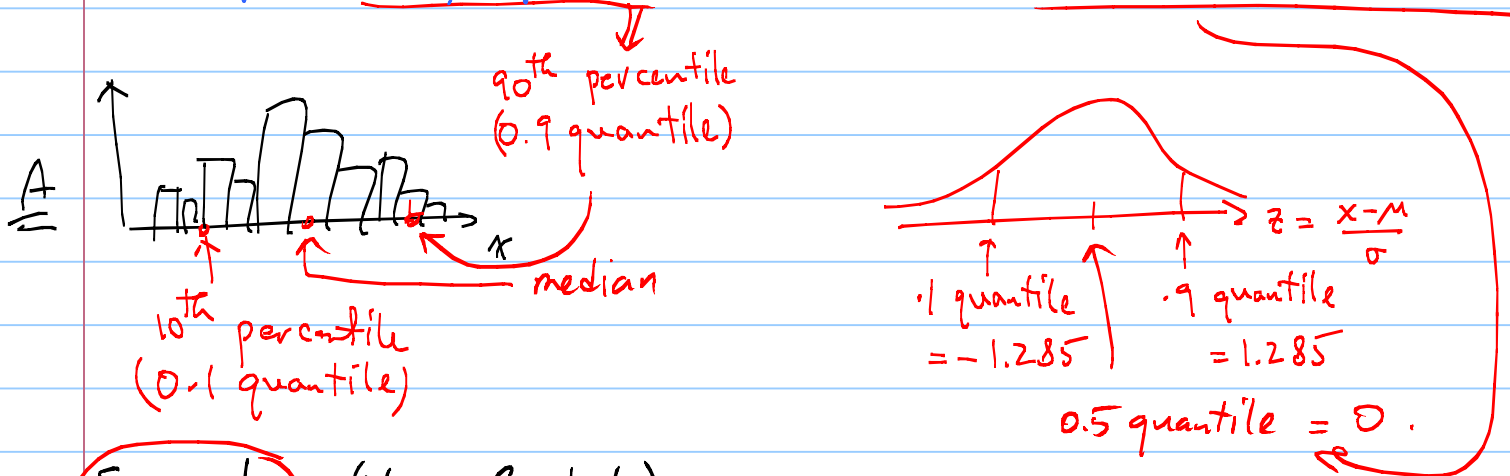 90th percentile
(0.9 quantile)
A
x
median
10th percentile
(0.1 quantile)
z = x-μ
σ
.1 quantile
= -1.285
.9 quantile
= 1.285
0.5 quantile = 0.